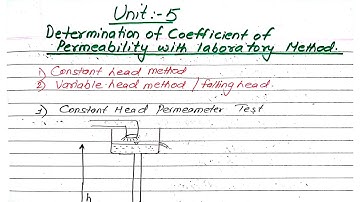 Unit:-5
Determination of Coefficient of
Permeability with laboratory Method.
1) Constant head method
2) Variable-head method / falling head.
3) Constant Head Permeameter Test
h